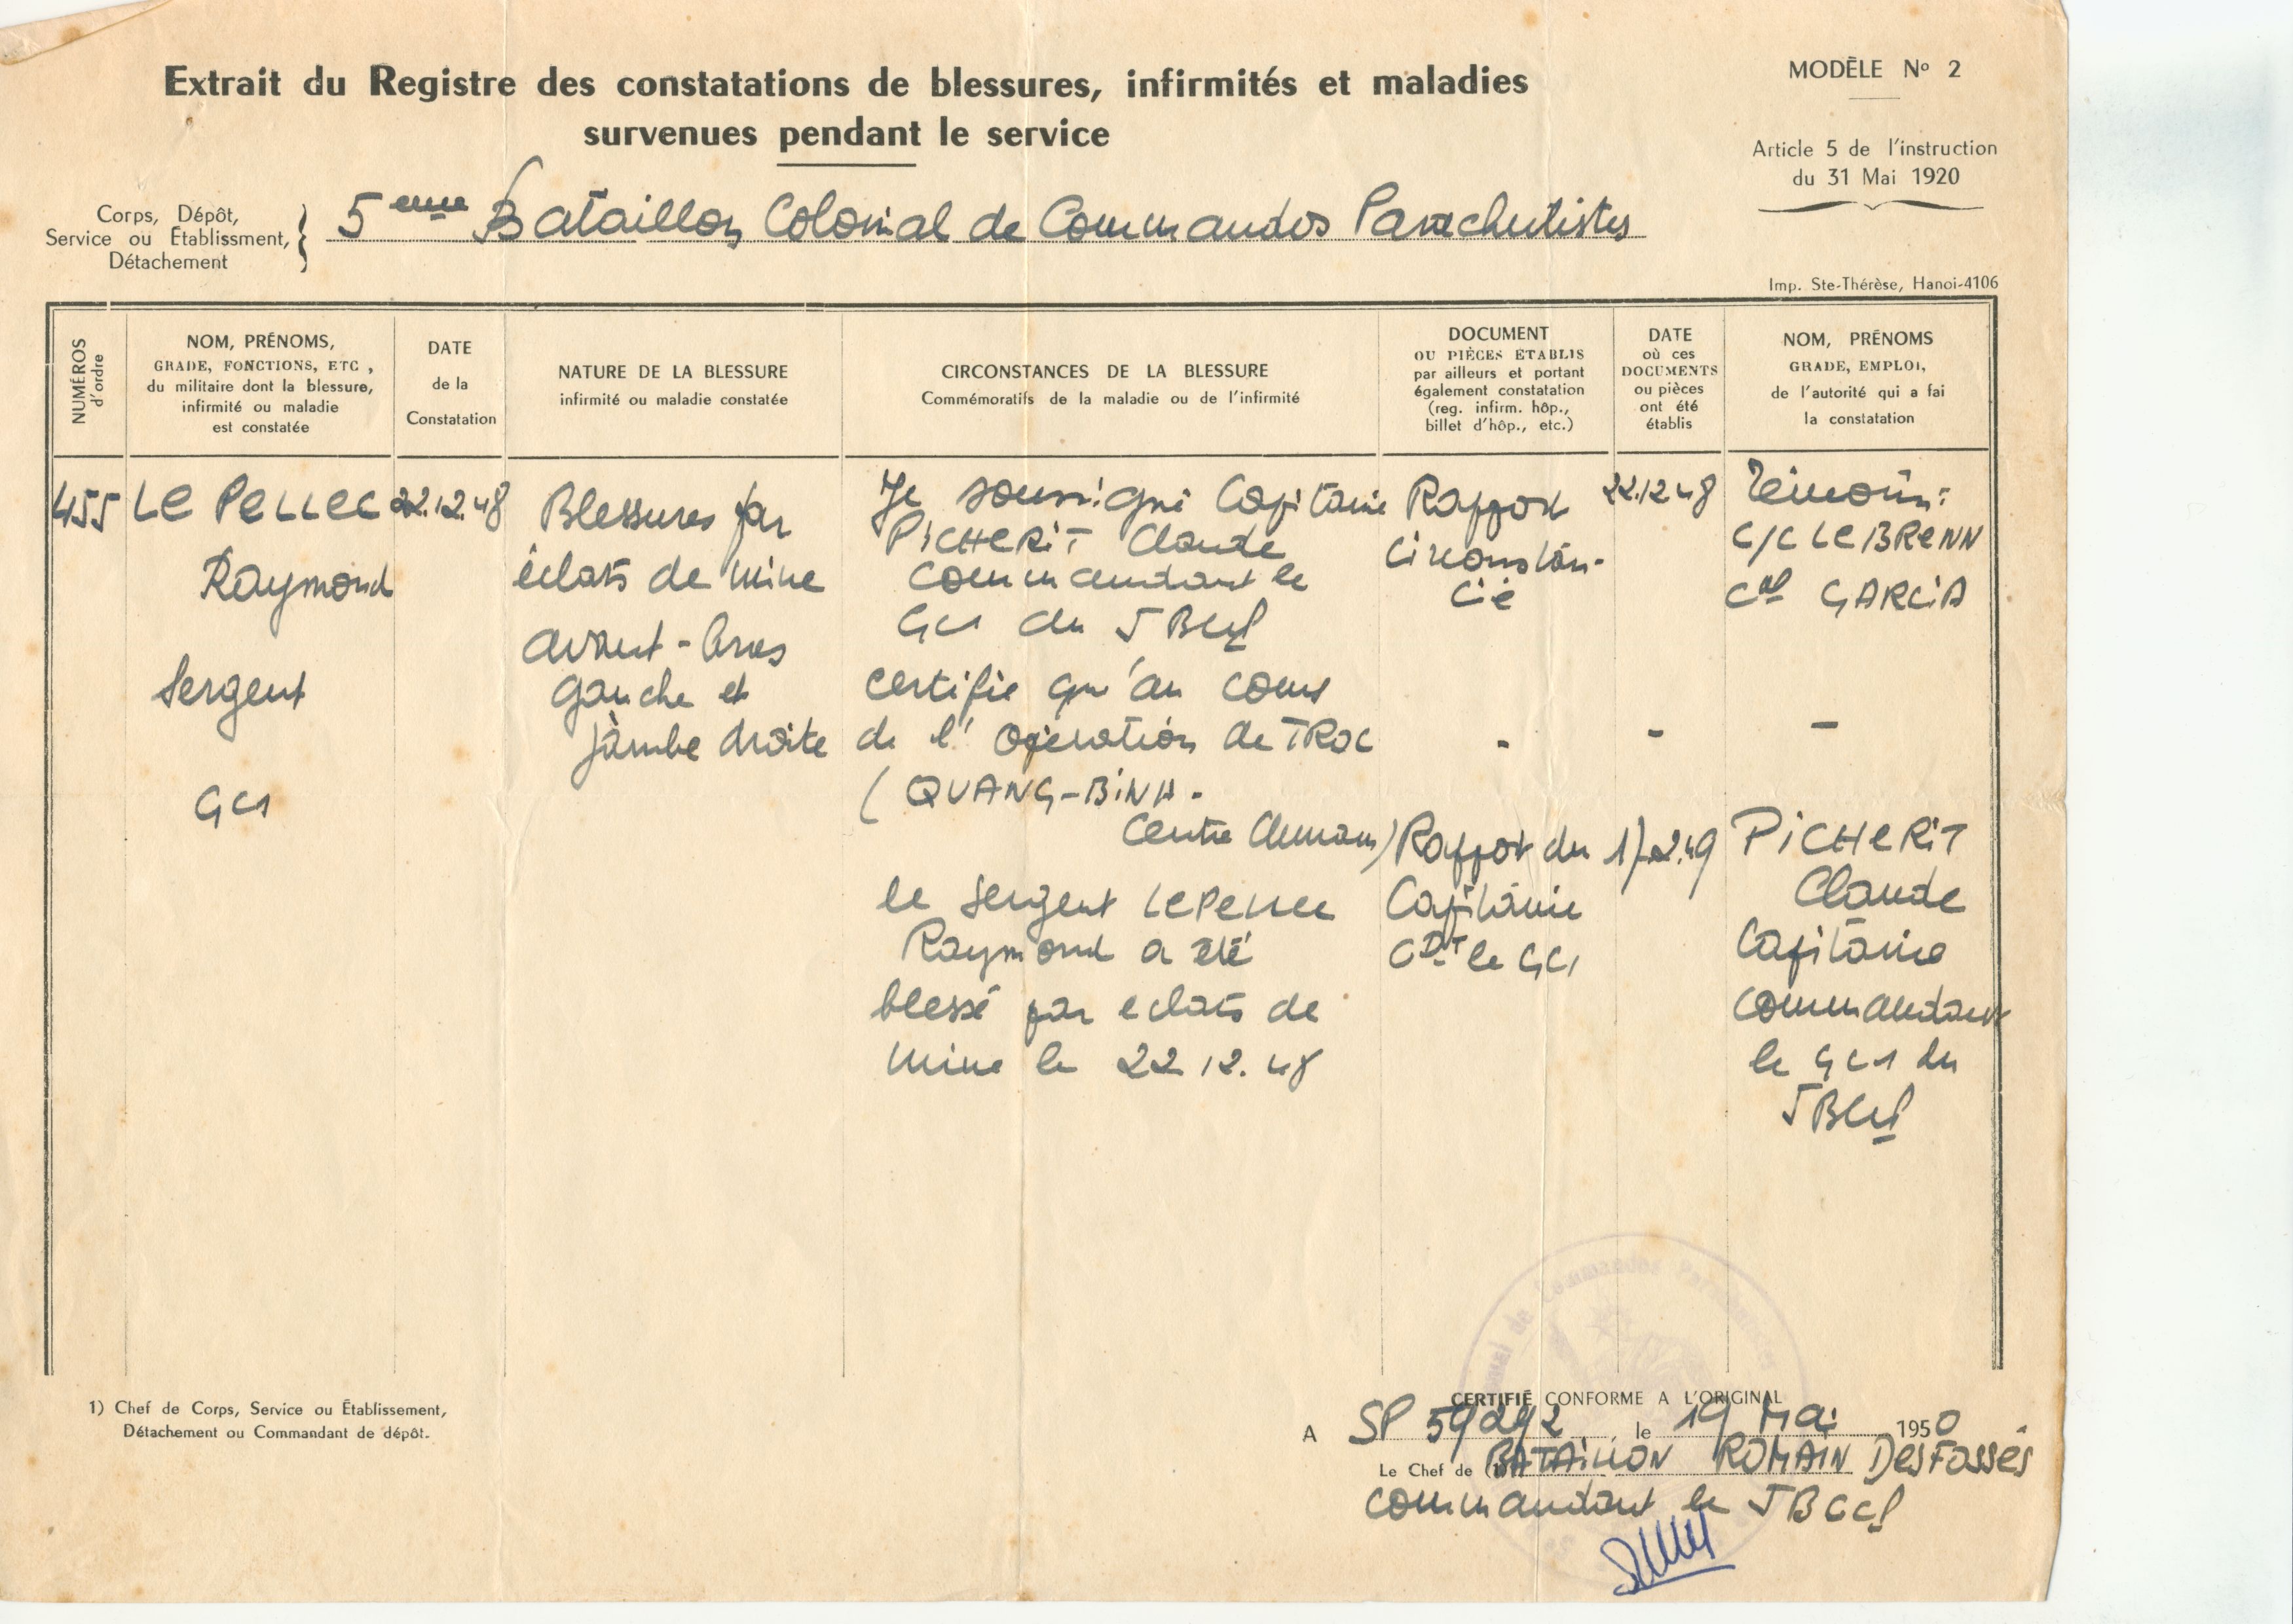 Extrait du Registre des constatations de blessures, infirmités et maladies
survenues pendant le service
MODÈLE No 2
Article 5 de l'instruction
du 31 Mai 1920
Corps, Dépôt,
Service ou Établissment,
Détachement
5eme Bataillon Colonial de Commandos Parachutistes
Imp. Ste-Thérèse, Hanoi-4106
NUMÉROS
d'ordre
NOM, PRÉNOMS,
GRADE, FONCTIONS, ETC ,
du militaire dont la blessure,
infirmité ou maladie
est constatée
DATE
de la
Constatation
NATURE DE LA BLESSURE
infirmité ou maladie constatée
CIRCONSTANCES DE LA BLESSURE
Commémoratifs de la maladie ou de l'infirmité
DOCUMENT
OU PIÈCES ÉTABLIS
par ailleurs et portant
également constatation
(reg. infirm. hôp.,
billet d'hôp., etc.)
DATE
où ces
DOCUMENTS
ou pièces
ont été
établis
NOM, PRÉNOMS
GRADE, EMPLOI,
de l'autorité qui a fai
la constatation
455
Le PeLLec
Raymond
Sergent
GC1
22.12.48
Blessures par
éclats de mine
avant-bras
gauche et
jambe droite
Je soussigné Capitaine
PicHeRiT Claude
commandant le
GC1 du 5 BCCP
certifie qu'au cours
de l'opération de TROC
(QUANG-BiNH-
Centre Annam)
le Sergent LePellec
Raymond a été
blessé par eclats de
mine le 22.12.48
Rapport
circonstan-
cié
-
Rapport du
Capitaine
CDT le GC1
22.12.48
-
17.2.49
Témoins:
C/C Le BReNN
Cal GARCiA
-
PicHeRiT
Claude
Capitaine
commandant
le GC1 du
5 BCCP
1) Chef de Corps, Service ou Établissement,
Détachement ou Commandant de dépôt.
CERTIFIÉ CONFORME A L'ORIGINAL
A SP 59292 le 19 Mai 1950
Le Chef de (1) BATAiLLON ROMAiN DesFossés
commandant le 5 BCCP